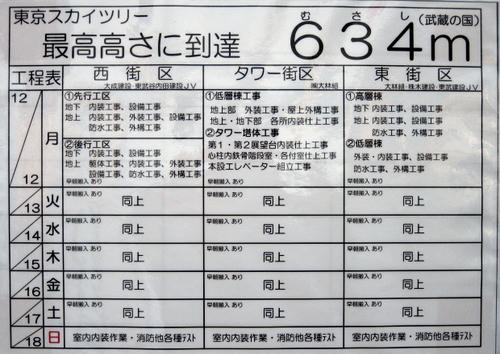 東京スカイツリー
最高高さに到達
むさし
634m
(武蔵の国)
工程表 西街区 タワー街区 東街区
大成建設・東武谷内田建設JV ㈱大林組 大林組・株木建設・東武建設JV
12 12 月
①先行工区
地下 内装工事、設備工事
地上 内装工事、外装工事、設備工事
防水工事、外構工事
②後行工区
地下 内装工事、設備工事
地上 躯体工事、内装工事、外装工事
設備工事、防水工事、外構工事
早朝搬入 あり
①低層棟工事
地上部 外装工事・屋上外構工事
地上・地下部 各所内装仕上工事
②タワー塔体工事
第1・第2展望台内装仕上工事
心柱内鉄骨階段室・各付室仕上工事
本設エレベーター組立工事
早朝搬入 あり
①高層棟
地下 内装工事、設備工事
地上 内装工事、設備工事
防水工事、外構工事
②低層棟
外装・内装工事、設備工事
防水工事、外構工事
早朝搬入 あり
13 火 早朝搬入 あり 同上 早朝搬入 あり 同上 早朝搬入 あり 同上
14 水 早朝搬入 あり 同上 早朝搬入 あり 同上 早朝搬入 あり 同上
15 木 早朝搬入 あり 同上 早朝搬入 あり 同上 早朝搬入 あり 同上
16 金 早朝搬入 あり 同上 早朝搬入 あり 同上 早朝搬入 あり 同上
17 土 早朝搬入 あり 同上 早朝搬入 あり 同上 早朝搬入 あり 同上
18 日 室内内装作業・消防他各種テスト 室内内装作業・消防他各種テスト 室内内装作業・消防他各種テスト